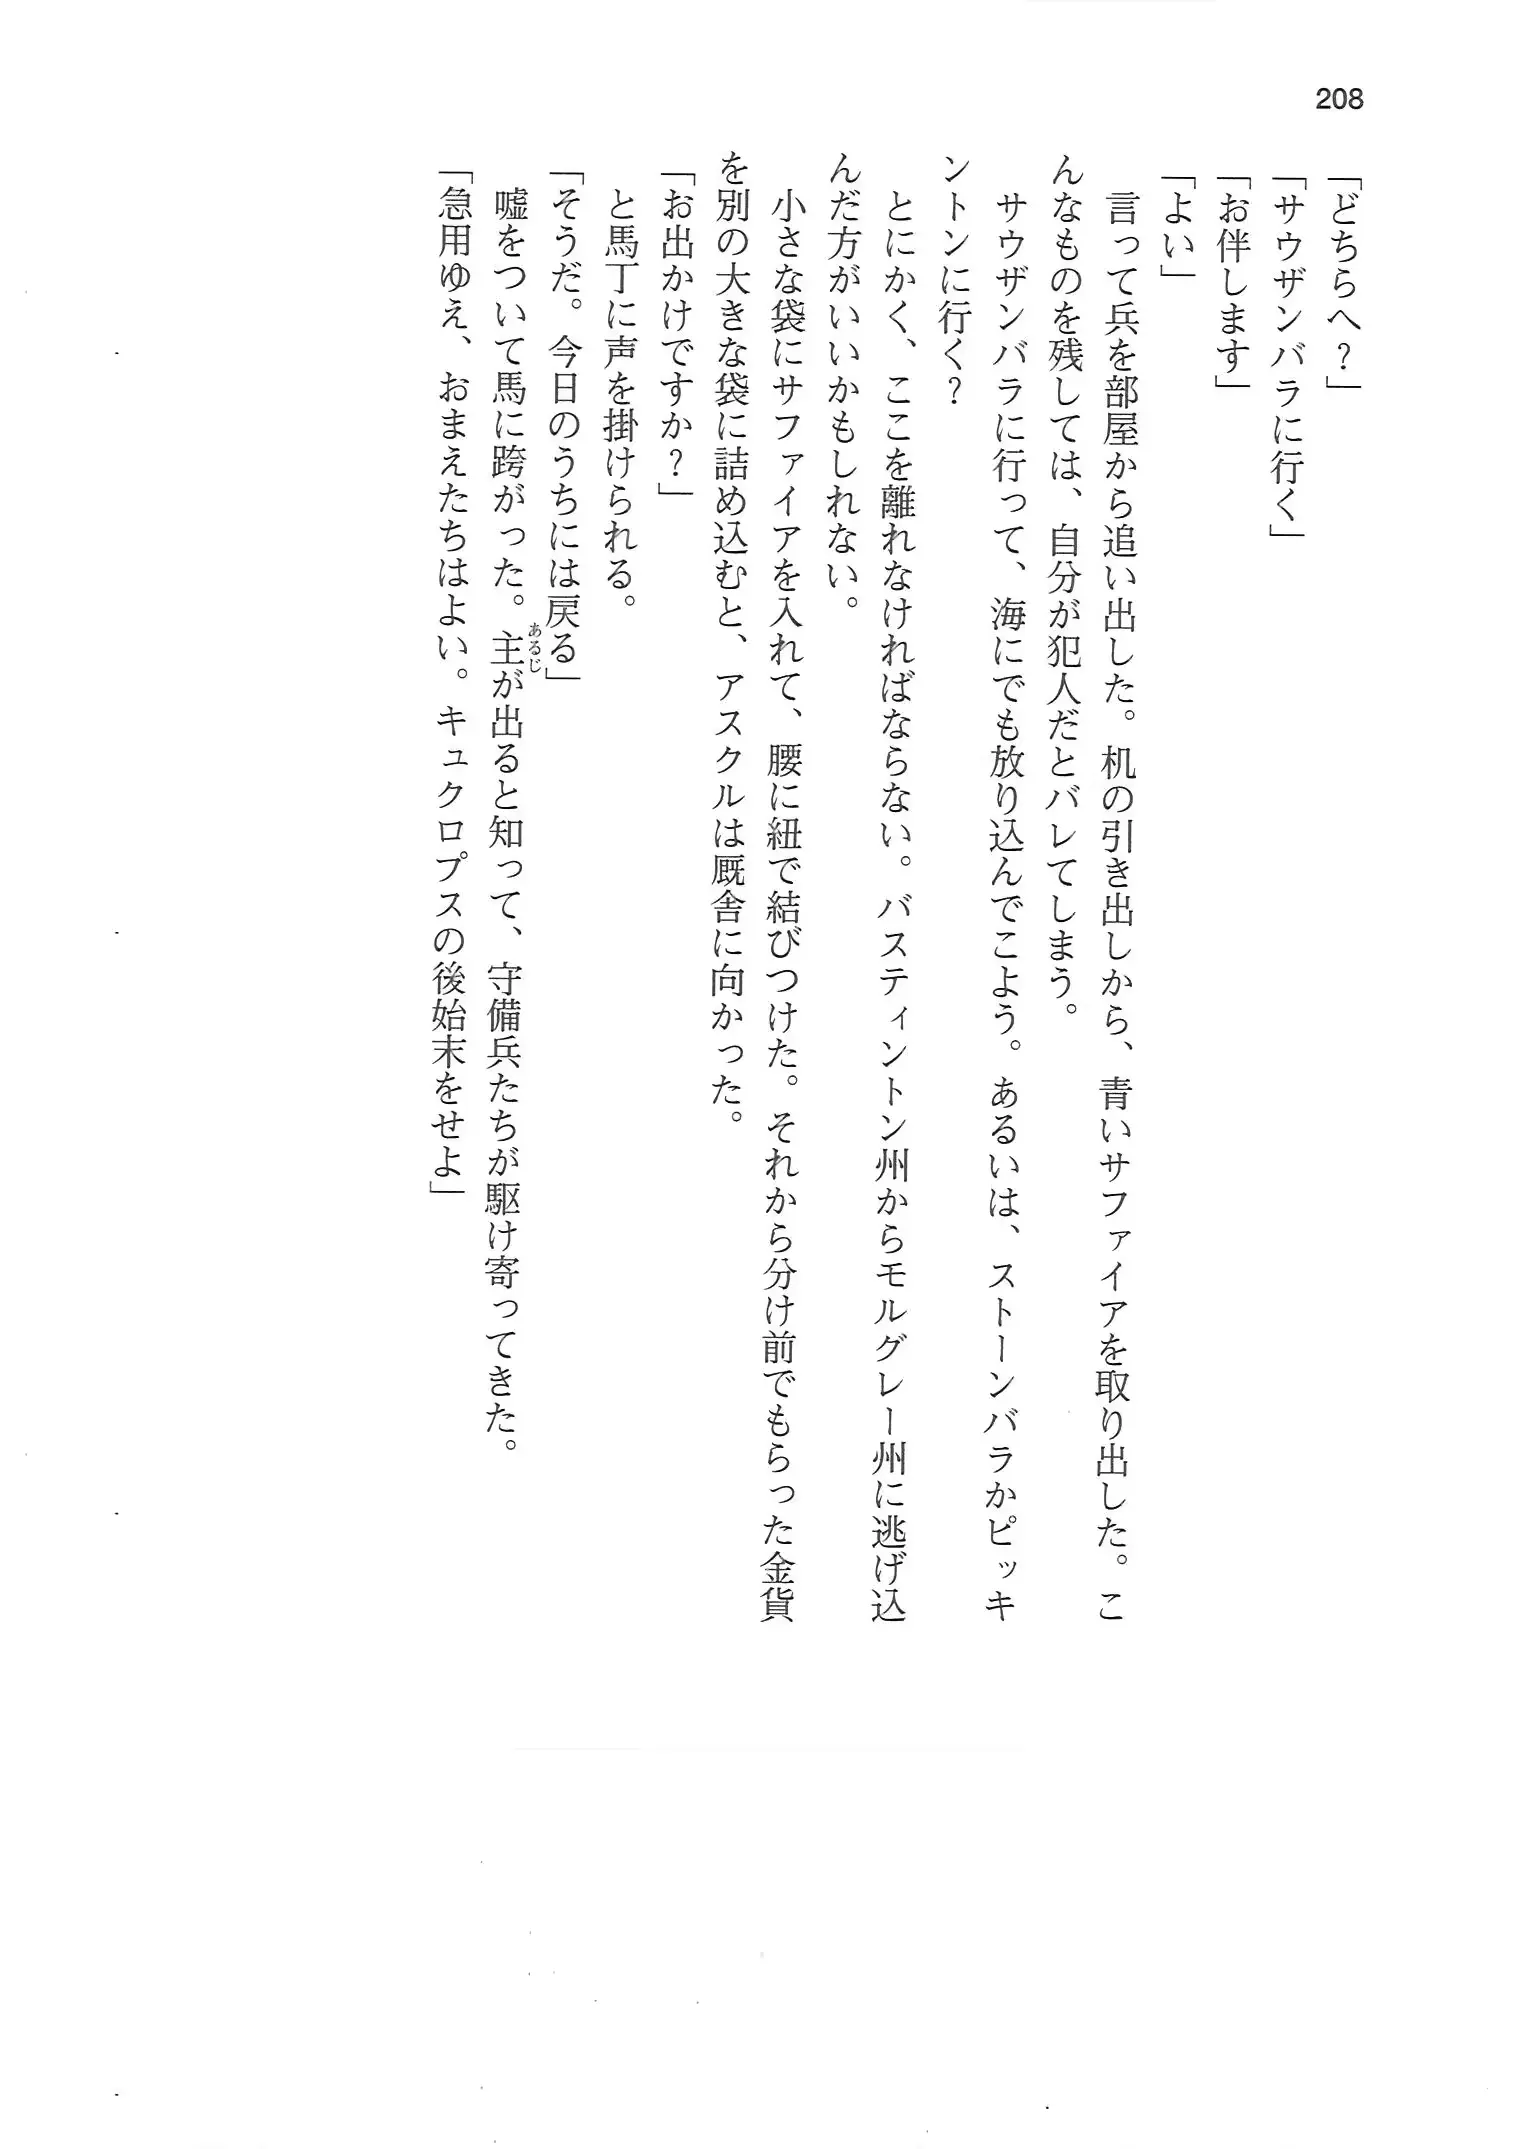 208
「どちらへ?」
「サウザンバラに行く」
「お伴します」
「よい」
　言って兵を部屋から追い出した。机の引き出しから、青いサファイアを取り出した。こ
んなものを残しては、自分が犯人だとバレてしまう。
　サウザンバラに行って、海にでも放り込んでこよう。あるいは、ストーンバラかピッキ
ントンに行く?
　とにかく、ここを離れなければならない。バスティントン州からモルグレー州に逃げ込
んだ方がいいかもしれない。
　小さな袋にサファイアを入れて、腰に紐で結びつけた。それから分け前でもらった金貨
を別の大きな袋に詰め込むと、アスクルは厩舎に向かった。
「お出かけですか?」
　と馬丁に声を掛けられる。
「そうだ。今日のうちには戻る」
　嘘をついて馬に跨がった。主が出ると知って、守備兵たちが駆け寄ってきた。
あるじ
「急用ゆえ、おまえたちはよい。キュクロプスの後始末をせよ」